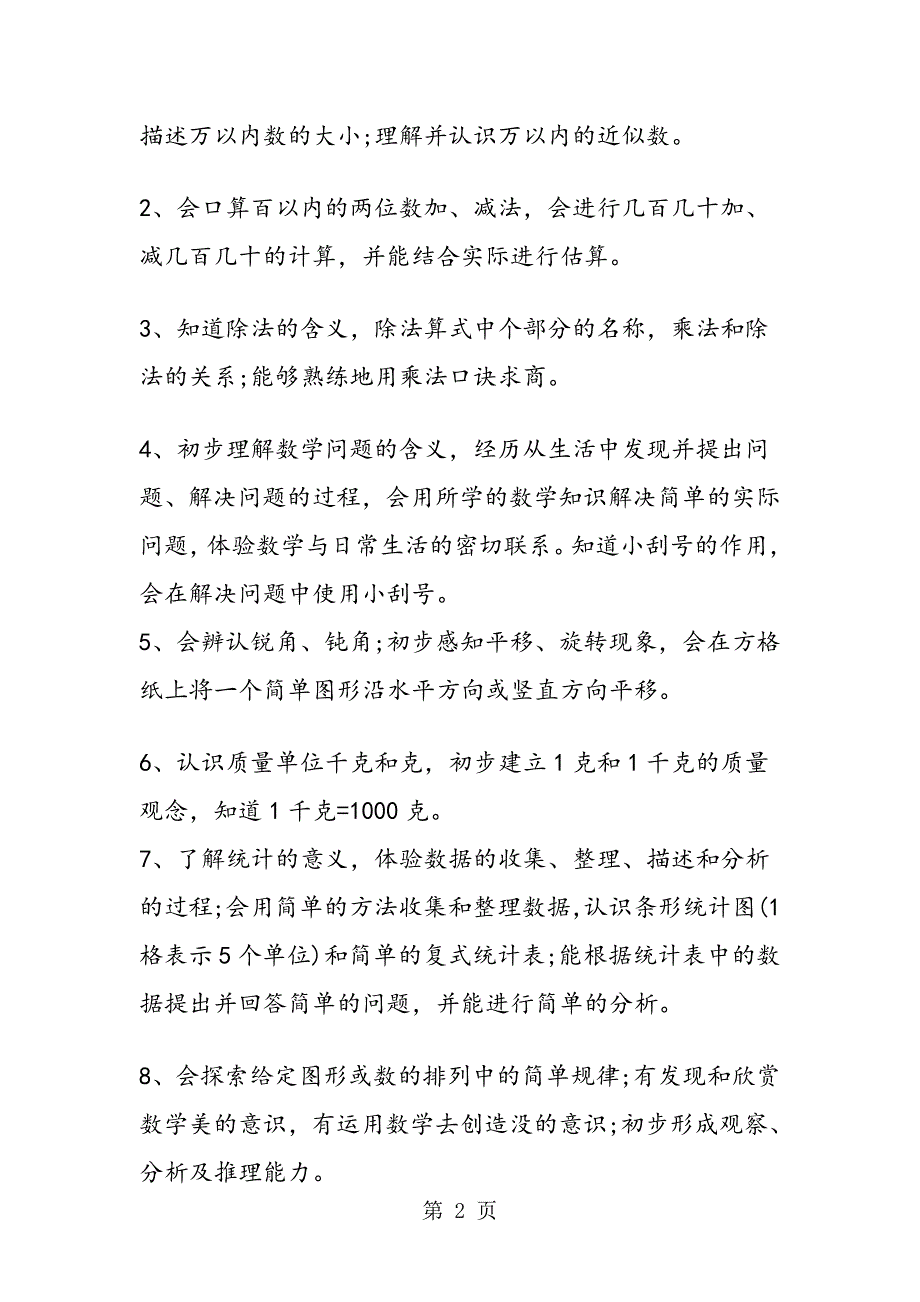 描述万以内数的大小;理解并认识万以内的近似数。
2、会口算百以内的两位数加、减法，会进行几百几十加、
减几百几十的计算，并能结合实际进行估算。
3、知道除法的含义，除法算式中个部分的名称，乘法和除
法的关系;能够熟练地用乘法口诀求商。
4、初步理解数学问题的含义，经历从生活中发现并提出问
题、解决问题的过程，会用所学的数学知识解决简单的实际
问题，体验数学与日常生活的密切联系。知道小刮号的作用，
会在解决问题中使用小刮号。
5、会辨认锐角、钝角;初步感知平移、旋转现象，会在方格
纸上将一个简单图形沿水平方向或竖直方向平移。
6、认识质量单位千克和克，初步建立1克和1千克的质量
观念，知道1千克=1000克。
7、了解统计的意义，体验数据的收集、整理、描述和分析
的过程;会用简单的方法收集和整理数据,认识条形统计图(1
格表示5个单位)和简单的复式统计表;能根据统计表中的数
据提出并回答简单的问题，并能进行简单的分析。
8、会探索给定图形或数的排列中的简单规律;有发现和欣赏
数学美的意识，有运用数学去创造没的意识;初步形成观察、
分析及推理能力。
第 2 页